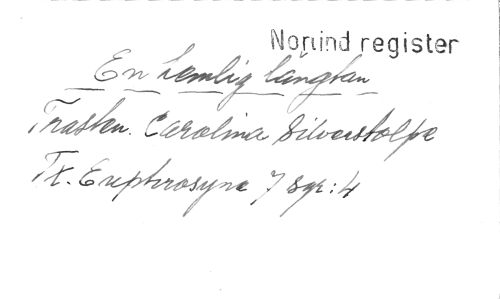 Norlind register
En hemlig längtan
Trasten. Carolina Silverstolpe
Tx. Euphrosyne 7 sgr: 4